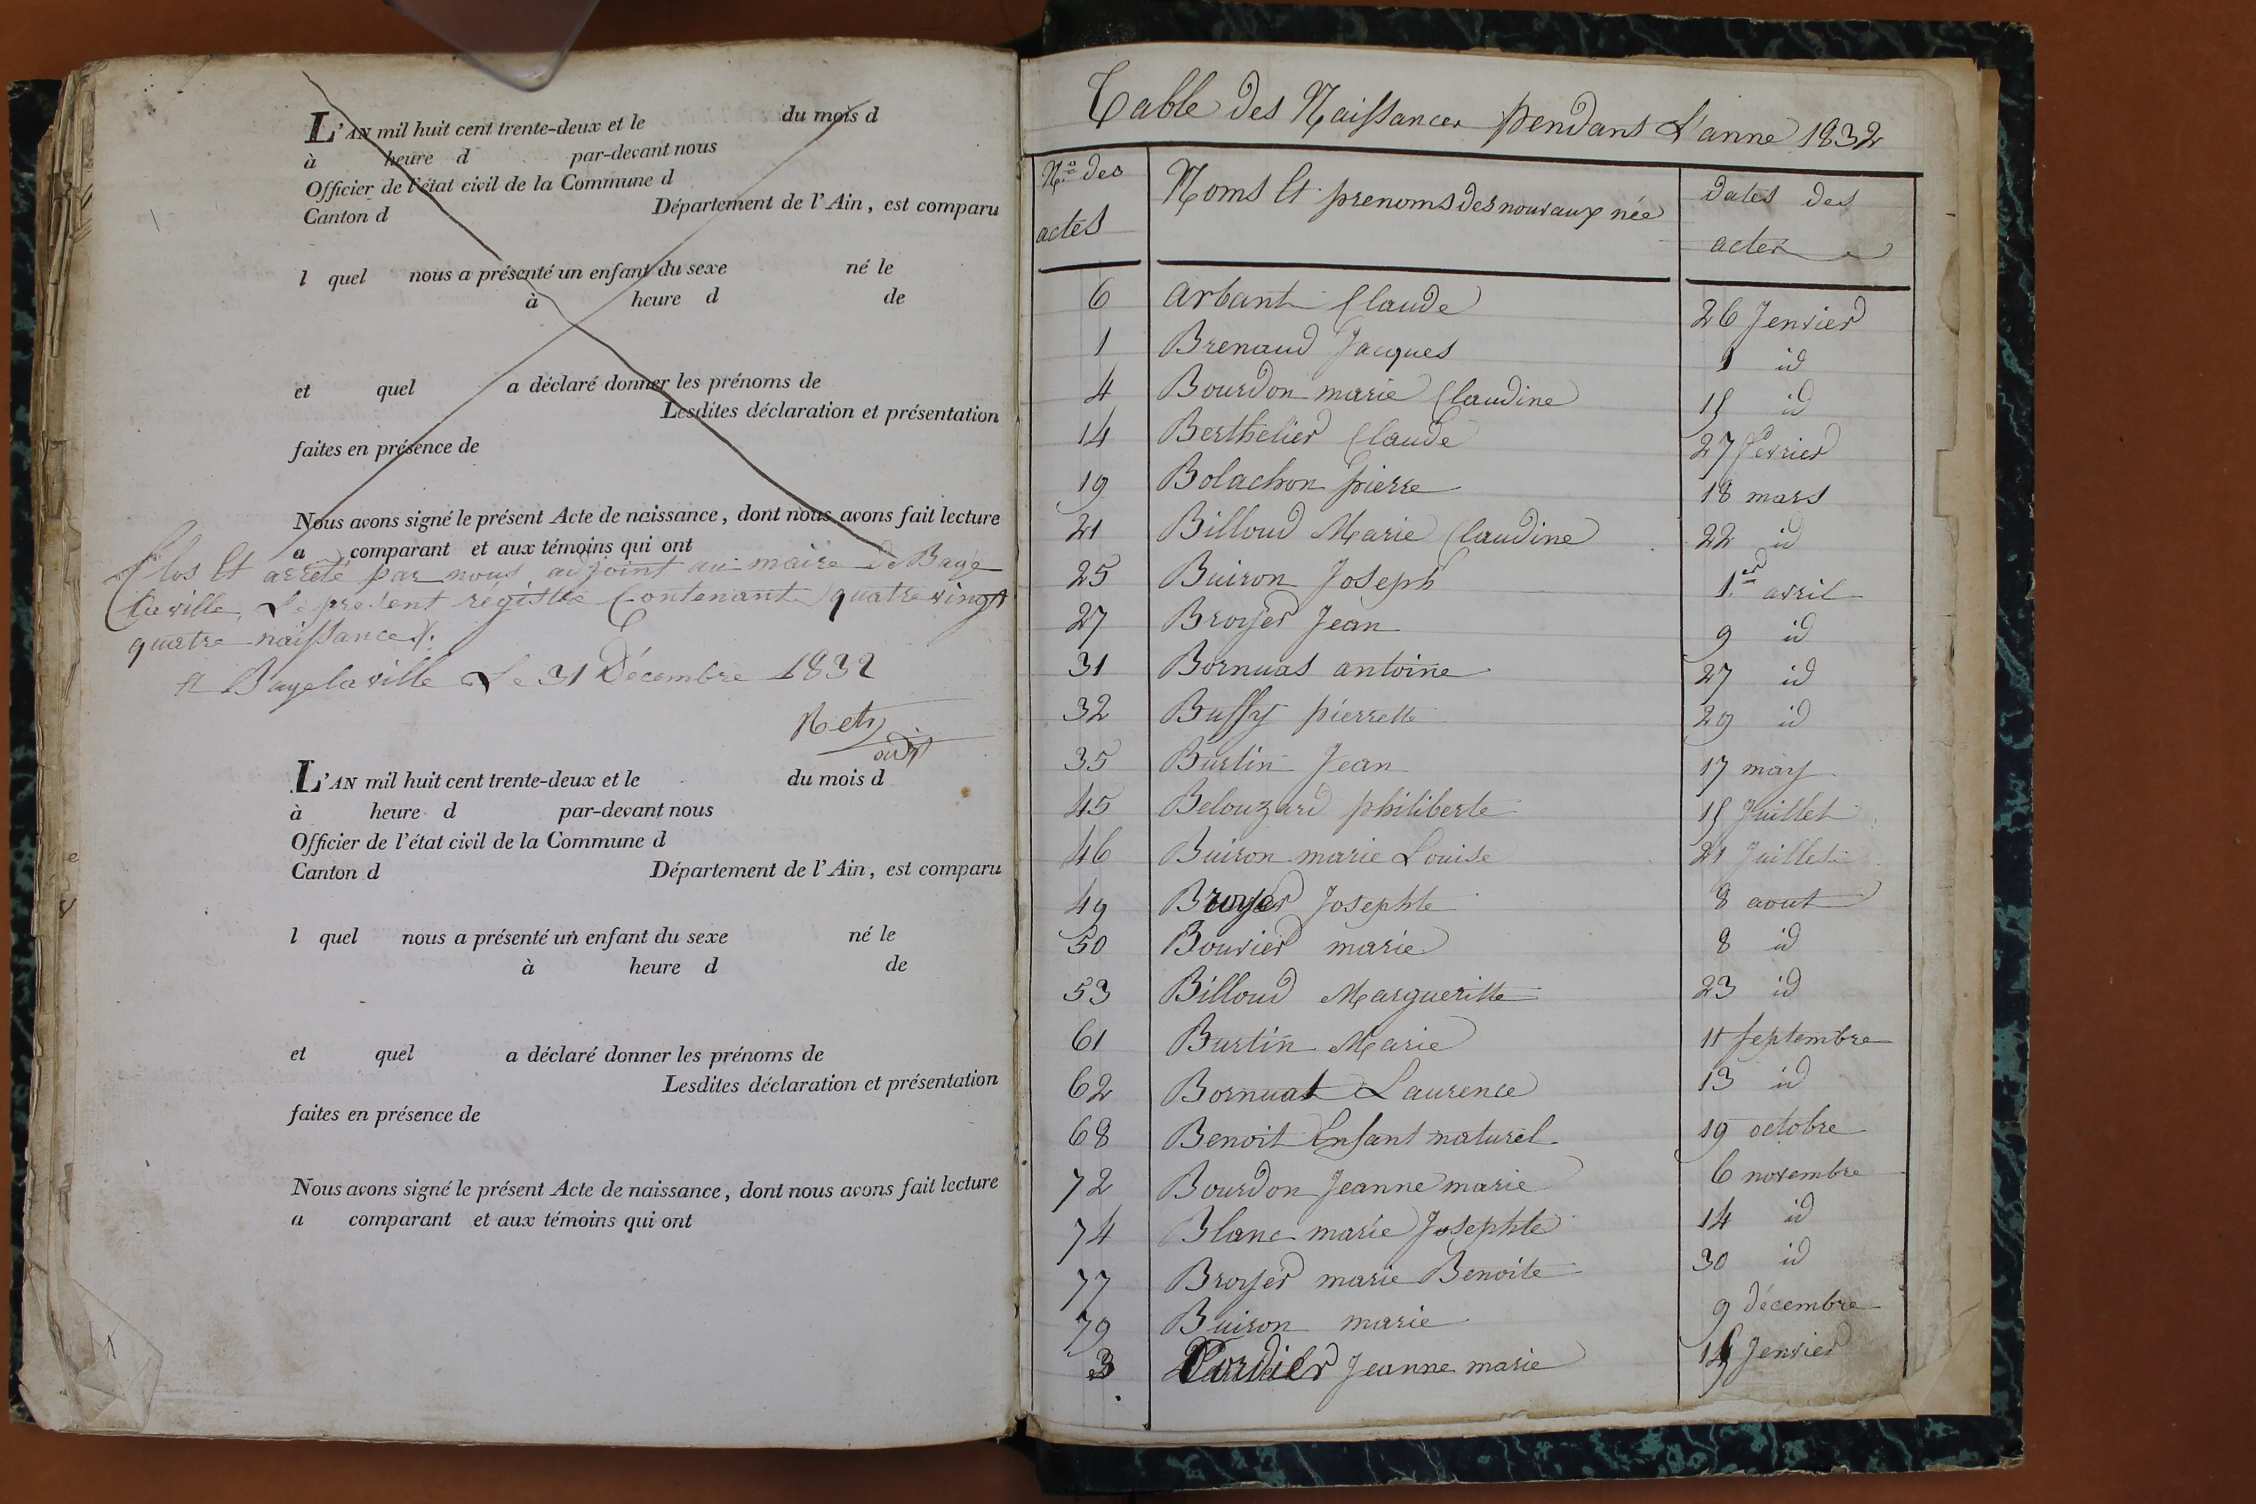 L'AN mil huit cent trente-deux et le du mois d
à heure d par-devant nous
Officier de l'état civil de la Commune d
Canton d Département de l'Ain, est comparu
l quel nous a présenté un enfant du sexe né le
à heure d de
et quel a déclaré donner les prénoms de
Lesdites déclaration et présentation
faites en présence de
Nous avons signé le présent Acte de naissance, dont nous avons fait lecture
a comparant et aux témoins qui ont
Clos Et arrêté par nous adjoint au maire de Bagé
laville, Le present régistre Contenant quatre vingt
quatre naissances.
A Bagelaville Le 31 Décembre 1832
L'AN mil huit cent trente-deux et le du mois d
à heure d par-devant nous
Officier de l'état civil de la Commune d
Canton d Département de l'Ain, est comparu
l quel nous a présenté un enfant du sexe né le
à heure d de
et quel a déclaré donner les prénoms de
Lesdites déclaration et présentation
faites en présence de
Nous avons signé le présent Acte de naissance, dont nous avons fait lecture
a comparant et aux témoins qui ont
Table des Naissances pendant L'anne 1832
Nos des actes Noms Et prenoms des nouvaux née dates des actes
6 arbant Claude 26 Jenvier
1 Brenaud Jacques 1 id
4 Bourdon marie Claudine 15 id
14 Berthelier Claude 27 fevrier
19 Bolachon pierre 18 mars
21 Billoud Marie Claudine 22 id
25 Buiron Joseph 1.er avril
27 Broyer Jean 9 id
31 Bornuas antoine 27 id
32 Buffy pierrette 29 id
35 Burtin Jean 17 may
45 Belouzard philiberte 15 Juillet
46 Buiron marie Louise 21 Juillet
49 Broyer Josephte 8 aout
50 Bouvier marie 8 id
53 Billoud Margueritte 23 id
61 Burtin Marie 11 septembre
62 Bornuat Laurence 13 id
68 Benoit Enfant naturel 19 octobre
72 Bourdon Jeanne marie 6 novembre
74 Blanc marie Josephte 14 id
77 Broyer marie Benoite 30 id
79 Buiron marie 9 décembre
3 Cordier Jeanne marie Jenvier